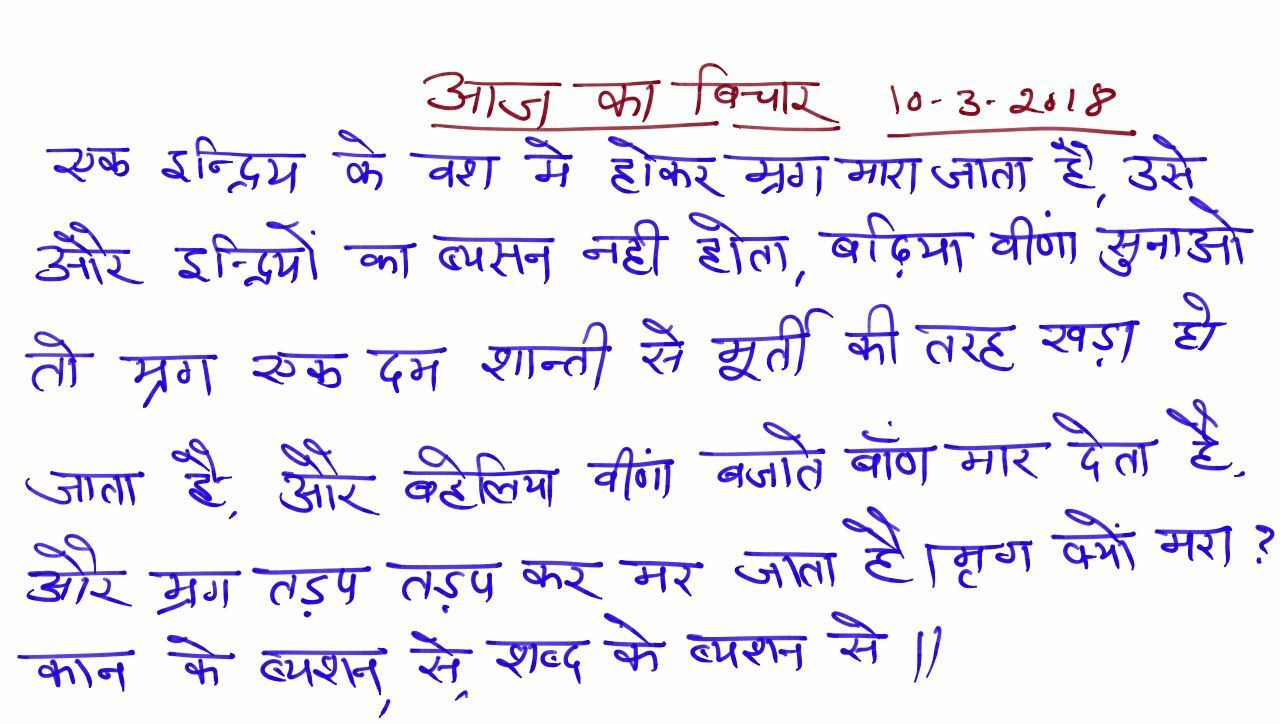 आज का बिचार 10-3-2018
एक इन्द्रिय के वश मे होकर म्रग मारा जाता है, उसे
और इन्द्रियों का ब्यसन नही होता, बढ़िया वीणां सुनाओ
तो म्रग एक दम शान्ती से मूर्ती की तरह खड़ा हो
जाता है, और बहेलिया वीणां बजाते बाँण मार देता है,
और म्रग तड़प तड़प कर मर जाता है। मृग क्यों मरा ?
कान के ब्यशन, से, शब्द के ब्यशन से ॥